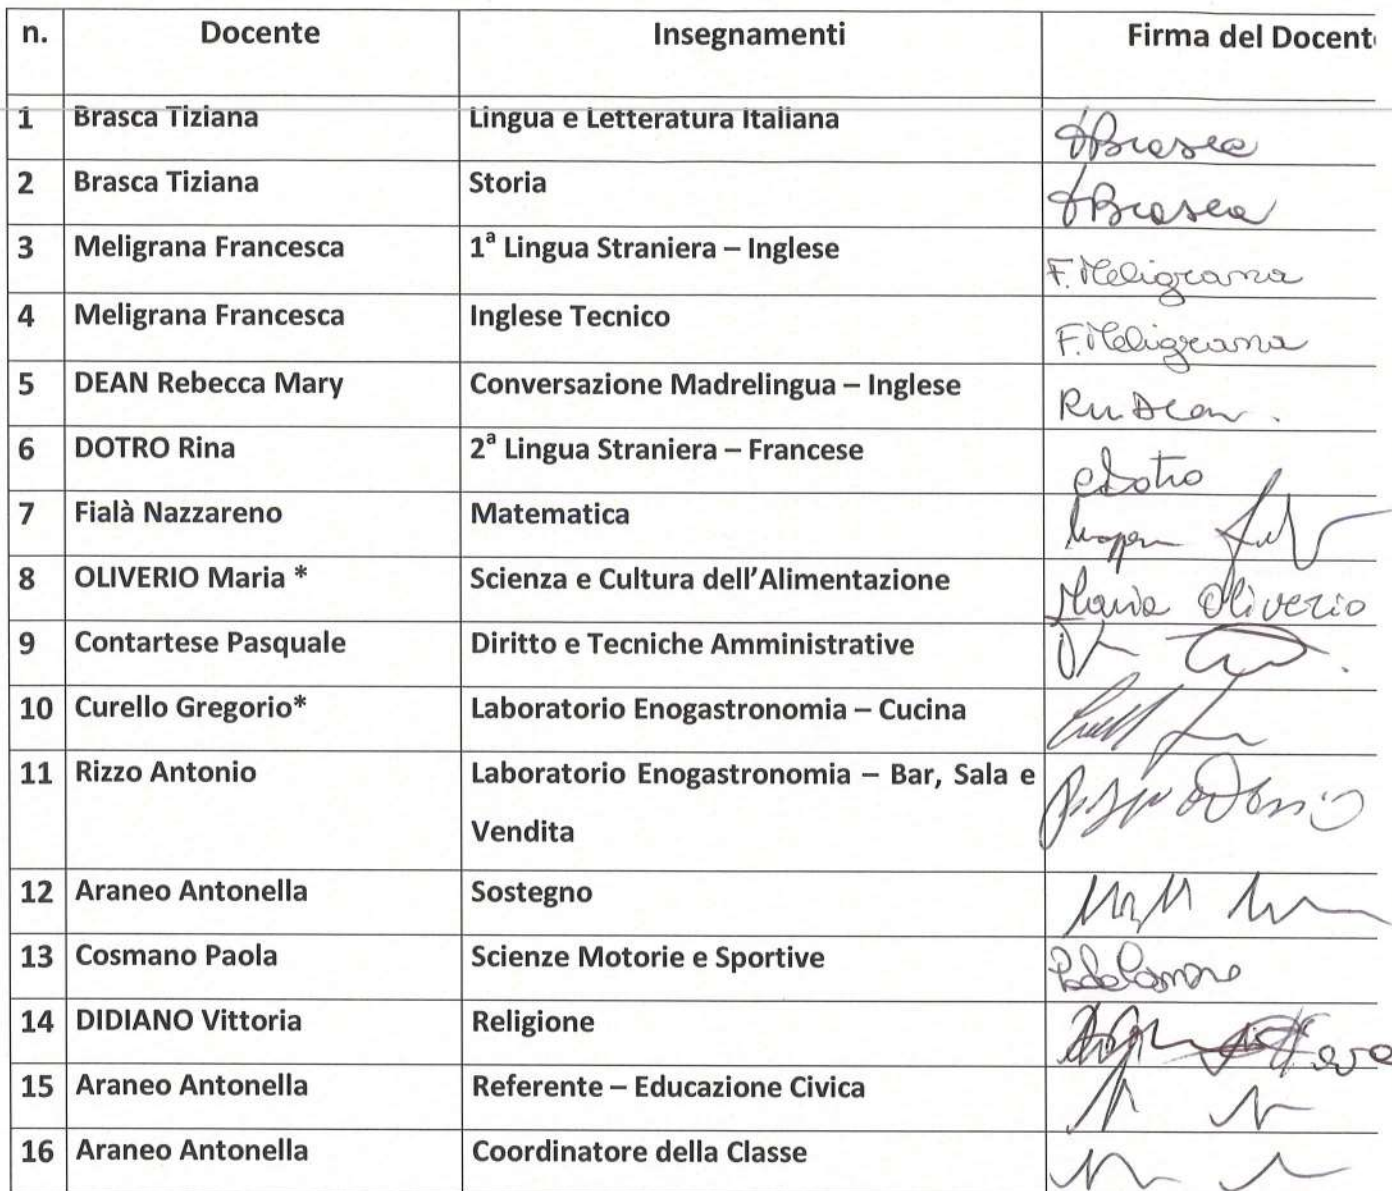 n. Docente Insegnamenti Firma del Docent
1 Brasca Tiziana Lingua e Letteratura Italiana TBrasca
2 Brasca Tiziana Storia TBrasca
3 Meligrana Francesca 1ª Lingua Straniera – Inglese F. Meligrana
4 Meligrana Francesca Inglese Tecnico F. Meligrana
5 DEAN Rebecca Mary Conversazione Madrelingua – Inglese
6 DOTRO Rina 2ª Lingua Straniera – Francese Dotro
7 Fialà Nazzareno Matematica
8 OLIVERIO Maria * Scienza e Cultura dell'Alimentazione Maria Oliverio
9 Contartese Pasquale Diritto e Tecniche Amministrative
10 Curello Gregorio* Laboratorio Enogastronomia – Cucina
11 Rizzo Antonio Laboratorio Enogastronomia – Bar, Sala e
Vendita
12 Araneo Antonella Sostegno
13 Cosmano Paola Scienze Motorie e Sportive
14 DIDIANO Vittoria Religione
15 Araneo Antonella Referente – Educazione Civica
16 Araneo Antonella Coordinatore della Classe